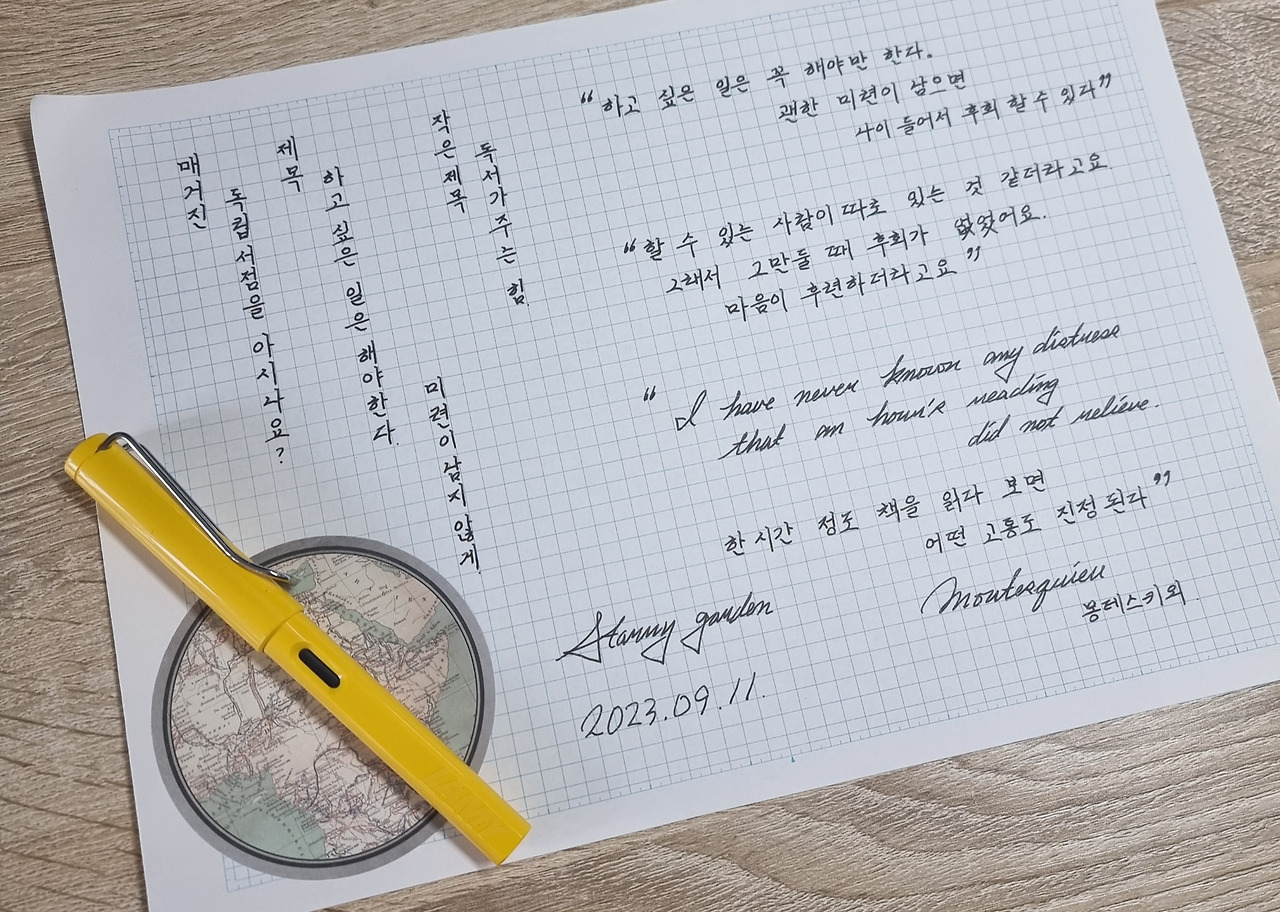 매거진
독립서점을 아시나요?
제목
하고 싶은 일은 해야한다.
미련이 남지 않게.
작은제목
독서가 주는 힘.
“하고 싶은 일은 꼭 해야만 한다.
괜한 미련이 남으면
나이 들어서 후회 할 수 있다”
“할 수 있는 사람이 따로 있는 것 같더라고요.
그래서 그만둘 때 후회가 없었어요.
마음이 후련하더라고요”
“I have never known any distress
that an hour's reading
did not relieve.
한 시간 정도 책을 읽다 보면
어떤 고통도 진정된다”
Montesquieu
몽테스키외
Starry garden
2023.09.11.
LAMY